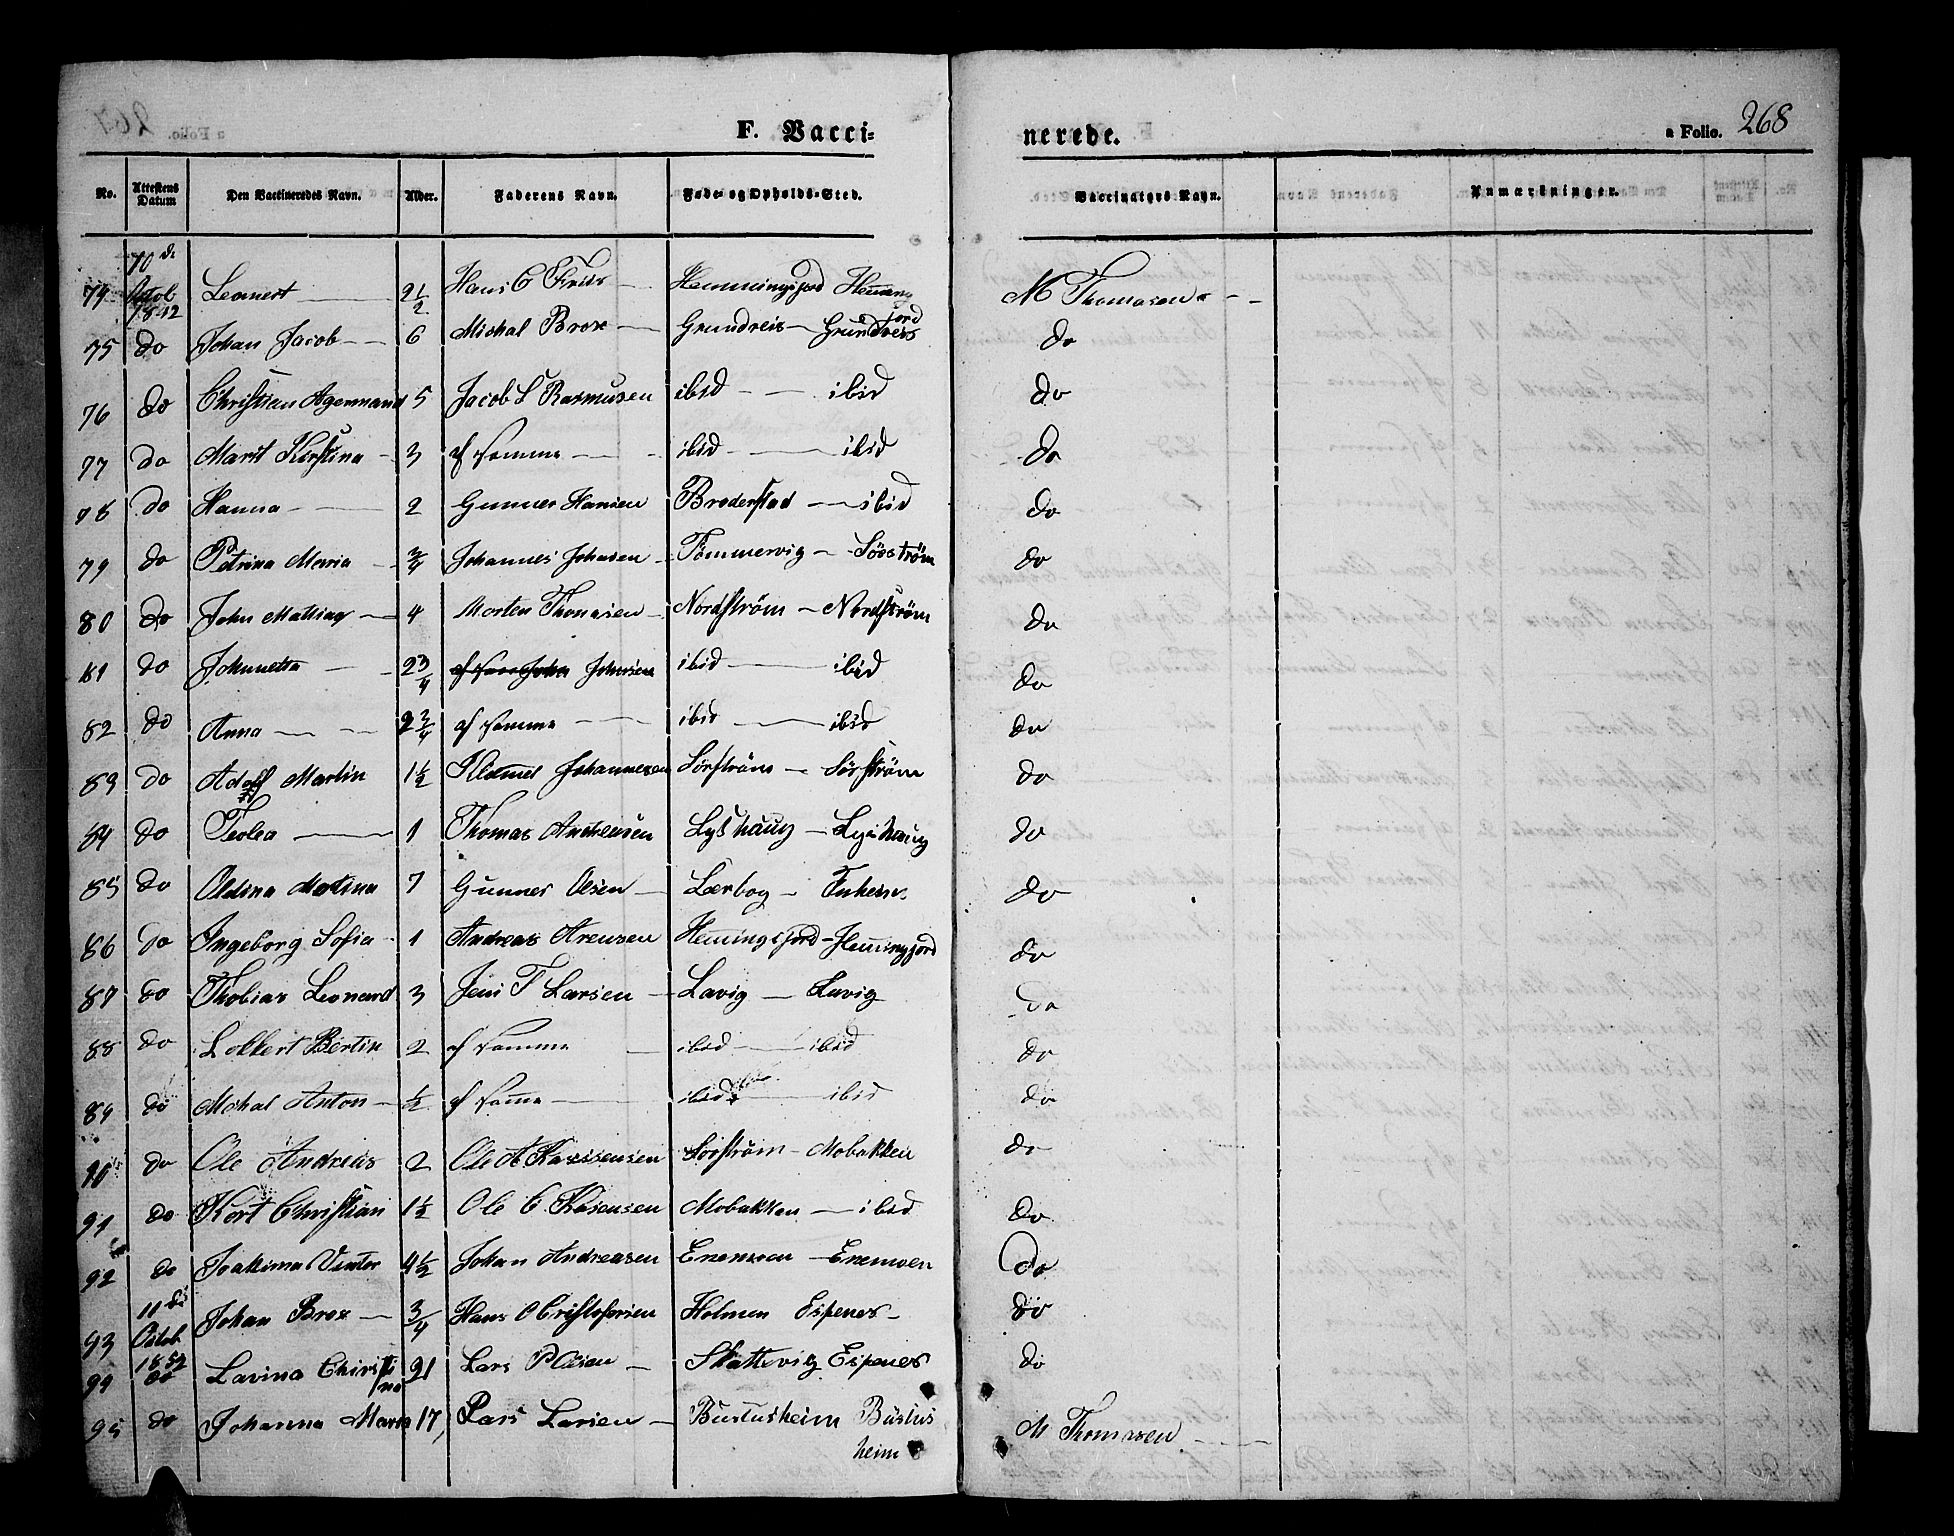 F. Vacci-
nerede.
a Folio. 268
No. Attestens Datum Den Vaccineredes Navn. Alder. Faderens Navn. Føde- og Opholds-Sted. Vaccinateurs Navn. Anmærkninger.
74 10de Octob 1852 Leonert 2 1/2 Hans C Friis Hemmingsjord Hemingjord M Thomasen
75 do Johan Jacob 6 Michal Brox Grundreis Grundreis do
76 do Christian Agermand 5 Jacob L Rasmusen ibid ibid do
77 do Marit Kirstina 3 af samme ibid ibid do
78 do Hanna 2 Gunner Hansen Broderstad ibid do
79 do Petrina Maria 3/4 Johannes Johnsen Tømmervig Söström do
80 do John Mathias 4 Morten Thomasen Nordstrøm Nordstrøm do
81 do Johnnetta 2 3/4 Johnsen ibid ibid do
82 do Anna 2 3/4 af samme ibid ibid do
83 do Adolf Martin 1 1/2 Klemet Johannesen Sørstrøm Sørstrøm do
84 do Teolea 1 Thomas Andreasen Lyshaug Lyshaug do
85 do Oldina Martina 7 Gunner Olsen Lærbog do
86 do Ingeborg Sofia 1 Andreas Arensen Hemingsjord Hemingjord do
87 do Thobias Leonard 3 Jens T Larsen Lavig Lavig do
88 do Lokkert Bertin 2 af samme ibid ibid do
89 do Mikal Anton 1/2 af samme ibid ibid do
90 do Ole Andreas 2 Ole A Sørstrøm Mobakken do
91 do Kort Christian 1 1/2 Ole C. Mobakken ibid do
92 do Joakima 4 1/2 Johan Andreasen Enemoen Enemoen do
93 11de Octob 1852 Johan Brox 3/4 Hans O Cristofersen Holmen Espenes do
94 do Lavina Christina 21 Lars P Olsen Skattevig Espenes do
95 do Johanna Maria 17 Lars Larsen Bustusheim Bustusheim M Thomasen